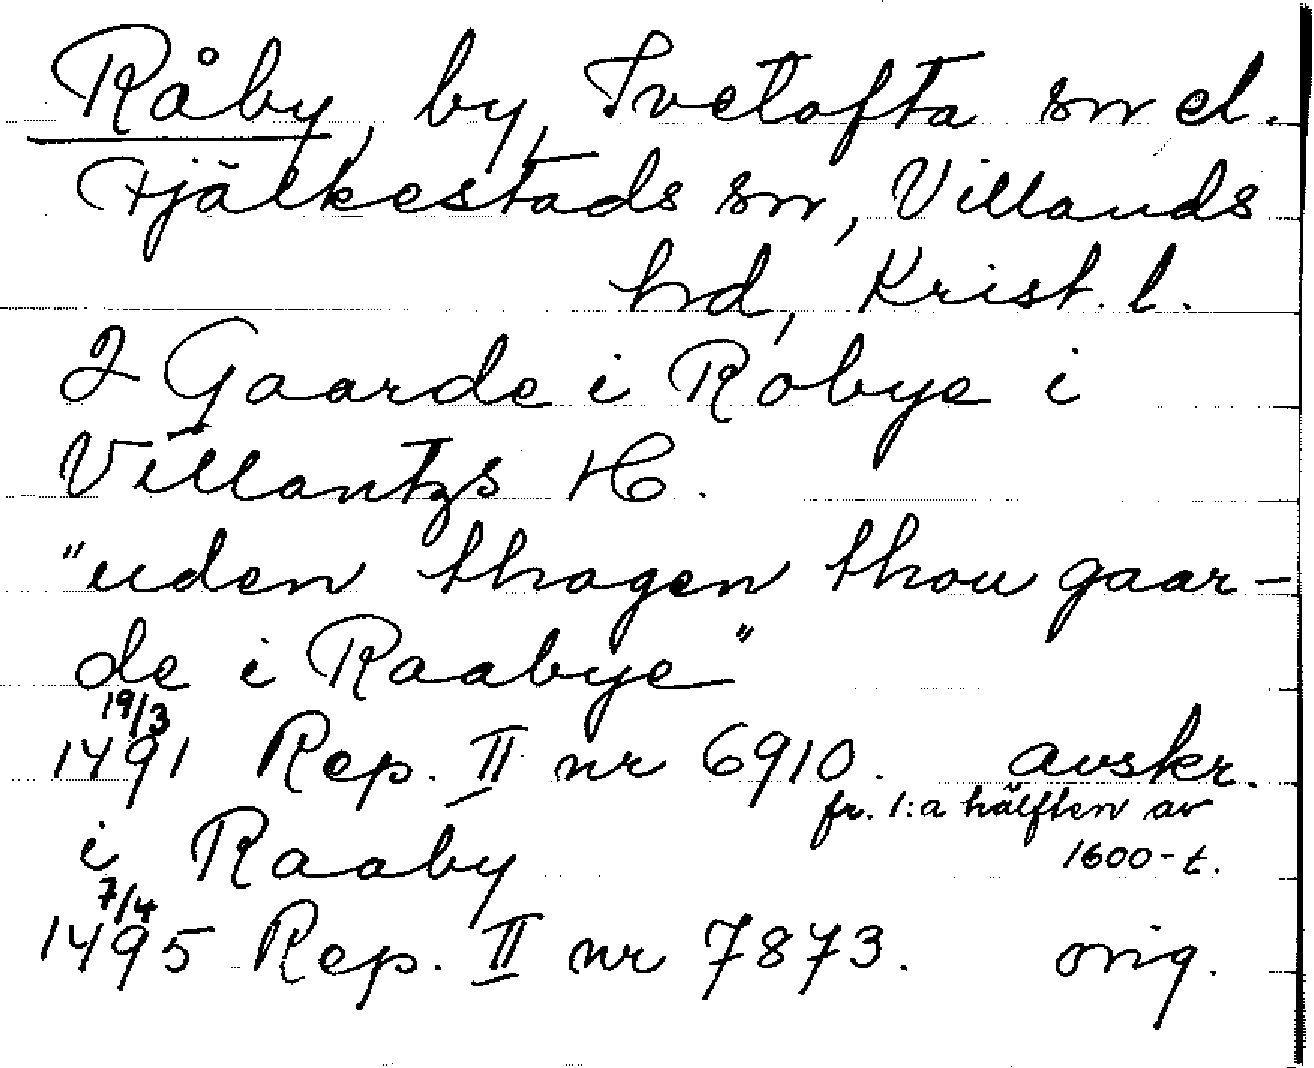 Råby, by, Ivetofta sn el.
Fjälkestads sn, Villands
hd, Krist. l.
2 Gaarde i Robye i
Villantzs H.
"uden thagen thou gaar-
de i Raabye"
19/3
1491 Rep. II nr 6910. avskr.
fr. 1:a hälften av
1600-t.
i Raaby
7/4
1495 Rep. II nr 7873. orig.